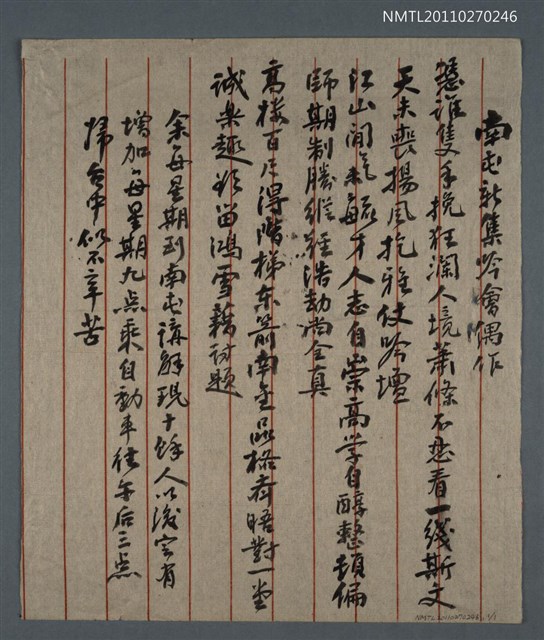 NMTL20110270246
南屯新集吟會偶作
憑誰隻手挽狂瀾人境蕭條不忍看一綫斯文
天未喪揚風扢雅仗吟壇
江山間氣未毓才人志自崇高学自醇整頓偏
師期制勝縱經浩劫尚全真
高楼百尺得階梯东箭南金品格齊晤對一堂
诚樂趣欣留鴻雪藉诗題
余每星期到南屯講解現十餘人以後定有
增加每星期九点乘自動車往午后三点
歸台中似不辛苦
NMTL20110270246